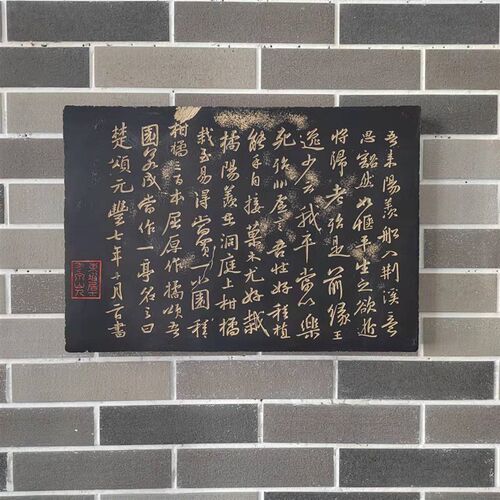 吾来陽羨船入荆溪意
思豁然如惬平生之欲逝
将歸老殆是前缘王
逸少云我卒當以樂
死殆非虚言吾性好種植
能手自接菓木尤好栽
橘陽羨在洞庭上柑橘
栽至易得當買一小園種
柑橘三百本屈原作橘頌吾
園若成當作一亭名之曰
楚頌元豐七年十月二日書